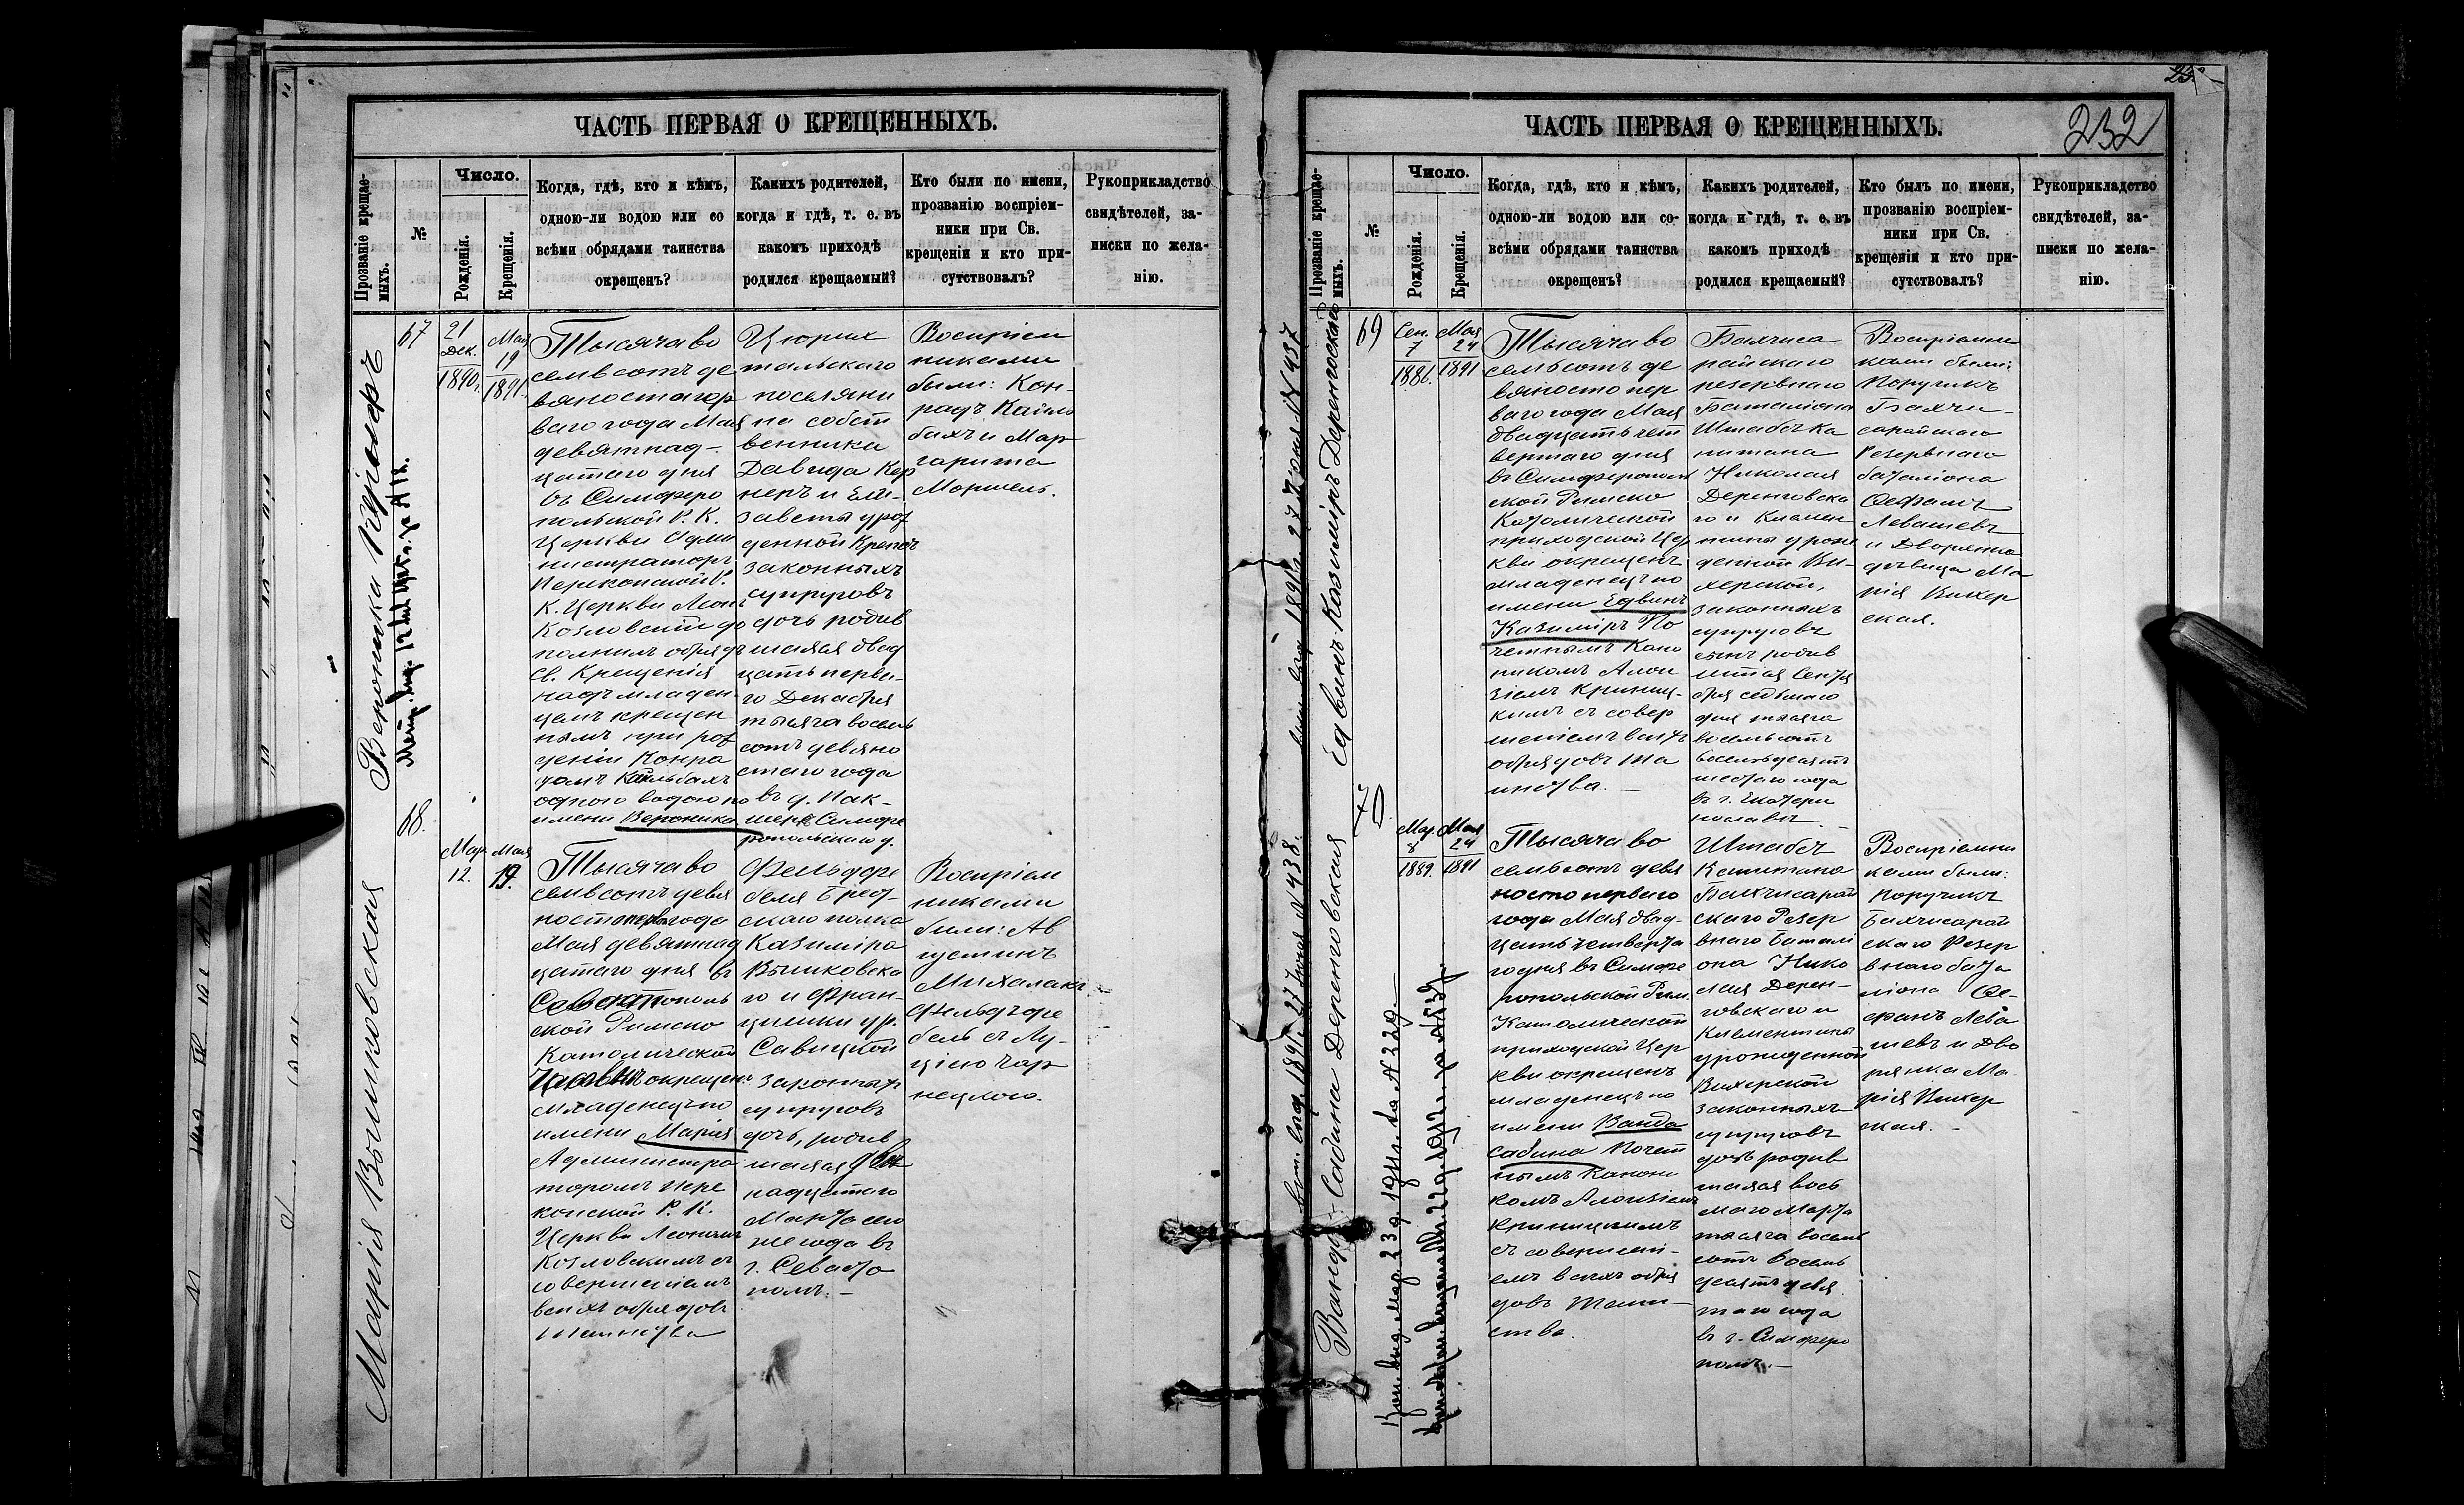 ЧАСТЬ ПЕРВАЯ О КРЕЩЕННЫХЪ.
Прозваніе крещае-
мыхъ.
№
Число.
Рожденія.
Крещенія.
Когда, гдѣ, кто и кѣмъ,
одною-ли водою или со
всѣми обрядами таинства
окрещенъ?
Какихъ родителей,
когда и гдѣ, т. е. въ
какомъ приходѣ
родился крещаемый?
Кто были по имени,
прозванію воспріем-
ники при Св.
крещеніи и кто при-
сутствовалъ?
Рукоприкладство
свидѣтелей, за-
писки по жела-
нію.
Вероника Кернеръ
67
21
Дек.
1890 г.
Мая
19
1891.
Тысяча во
семьсотъ де
вяностапер
ваго года Мая
девятнад-
цатаго дня
въ Симферо
польской Р. К.
Церкви Адми
нистраторъ
Перекопской Р.
К. Церкви Леонъ
Козловскій до
полнилъ обрядъ
Св. Крещенія
надъ младен-
цемъ крещен
нымъ при рож
деніи Конра
домъ Кайльбахъ
одною водою по
имени Вероника
Цюрих
тальскаго
поселяни
на собст
венника
Давида Кер
неръ и Ели-
заветы урож
денной
законныхъ
супруговъ
дочь родив
шаяся двад
цать перва-
го Декабря
тысяча восемь
сотъ девяно
стаго года
въ д. Пак-
шери Симфе
ропольскаго у.
Воспріем
никами
были: Кон-
радъ Кайль
бахъ и Мар
гарита
Моршель.
Марія Вышковская
68.
Мар.
12.
Мая
19.
Тысяча во
семьсотъ девя
ностоперв. года
Мая девятнад
цатаго дня въ
Севастополь
ской Римско
Католической
окрещенъ
младенецъ по
имени Марія
Администра
торомъ Пере
копской Р. К.
Церкви Леономъ
Козловскимъ съ
совершеніемъ
всѣхъ обрядовъ
таинства
Фельдфе
беля Брест-
скаго полка
Казиміра
Вышковска
го и Фран-
цишки ур.
Савицкой
законныхъ
супруговъ
дочь, родив
шаяся двѣ
надцатаго
Марта сего
же года въ
г. Севасто
полѣ.-
Воспріем
никами
были: Ав
густинъ
Михалакъ
Фельдфе
бель съ Лу-
ціею Чар
нецкою.
ЧАСТЬ ПЕРВАЯ О КРЕЩЕННЫХЪ.
232
Прозваніе крещае-
мыхъ.
№
Число.
Рожденія.
Крещенія.
Когда, гдѣ, кто и кѣмъ,
одною-ли водою или со-
всѣми обрядами таинства
окрещенъ?
Какихъ родителей,
когда и гдѣ, т. е. въ
какомъ приходѣ
родился крещаемый?
Кто былъ по имени,
прозванію воспріем-
ники при Св.
крещеніи и кто при-
сутствовалъ?
Рукоприкладство
свидѣтелей, за-
писки по жела-
нію.
Едвинъ-Казиміръ Деренговскій
69
Сен.
7
1886.
Мая
24
1891
Тысяча во
семьсотъ де
вяносто пер
ваго года Мая
двадцать чет
вертаго дня
въ Симферополь
ской Римско
Католической
приходской Цер
кви окрещенъ
младенецъ по
имени Едвинъ
Казиміръ По
четнымъ Кано
никомъ Алои
зіемъ Криниц-
кимъ съ совер
шеніемъ всѣхъ
обрядовъ та
инства.-
Бахчиса
райскаго
резервнаго
Баталіона
Штабсъ Ка
питана
Николая
Деренговска
го и Клемен
тины урож
денной Ви-
херской,
законныхъ
супруговъ
сынъ родив
шійся Сентя
бря седьмаго
дня тысяча
восемьсотъ
восемьдесятъ
шестаго года
въ г. Екатери
нославѣ.
Воспріемни
ками были:
Поручикъ
Бахчи-
сарайскаго
Резервнаго
баталіона
Левашевъ
и Дворянка
дѣвица Ма
рія Вихер
ская.
Ванда-Сабина Деренговская
70
Мар.
8
1889.
Мая
24
1891
Тысяча во
семьсотъ девя
носто перваго
года Мая двад-
цать четверта
го дня въ Симфе
ропольской Рим.
Католической
приходской Цер
кви окрещенъ
младенецъ по
имени Ванда
Сабина Почет
нымъ Канони
комъ Алоизіемъ
Криницкимъ
съ совершені-
емъ всѣхъ обря
довъ Таин-
ства.
Штабсъ
Капитана
Бахчисарай
скаго Резер
внаго Батали
она Нико
лая Дерен-
говскаго и
Клементины
урожденной
Вихерской
законныхъ
супруговъ
дочь родив
шаяся вось
маго Марта
тысяча восемь
сотъ восемь
десятъ девя
таго года
въ г. Симферо
полѣ.-
Воспріемни
ками были:
Поручикъ
Бахчисарай
скаго Резер
внаго бата
ліона
Лева
шевъ и Дво
рянка Ма
рія Вихер
ская.-